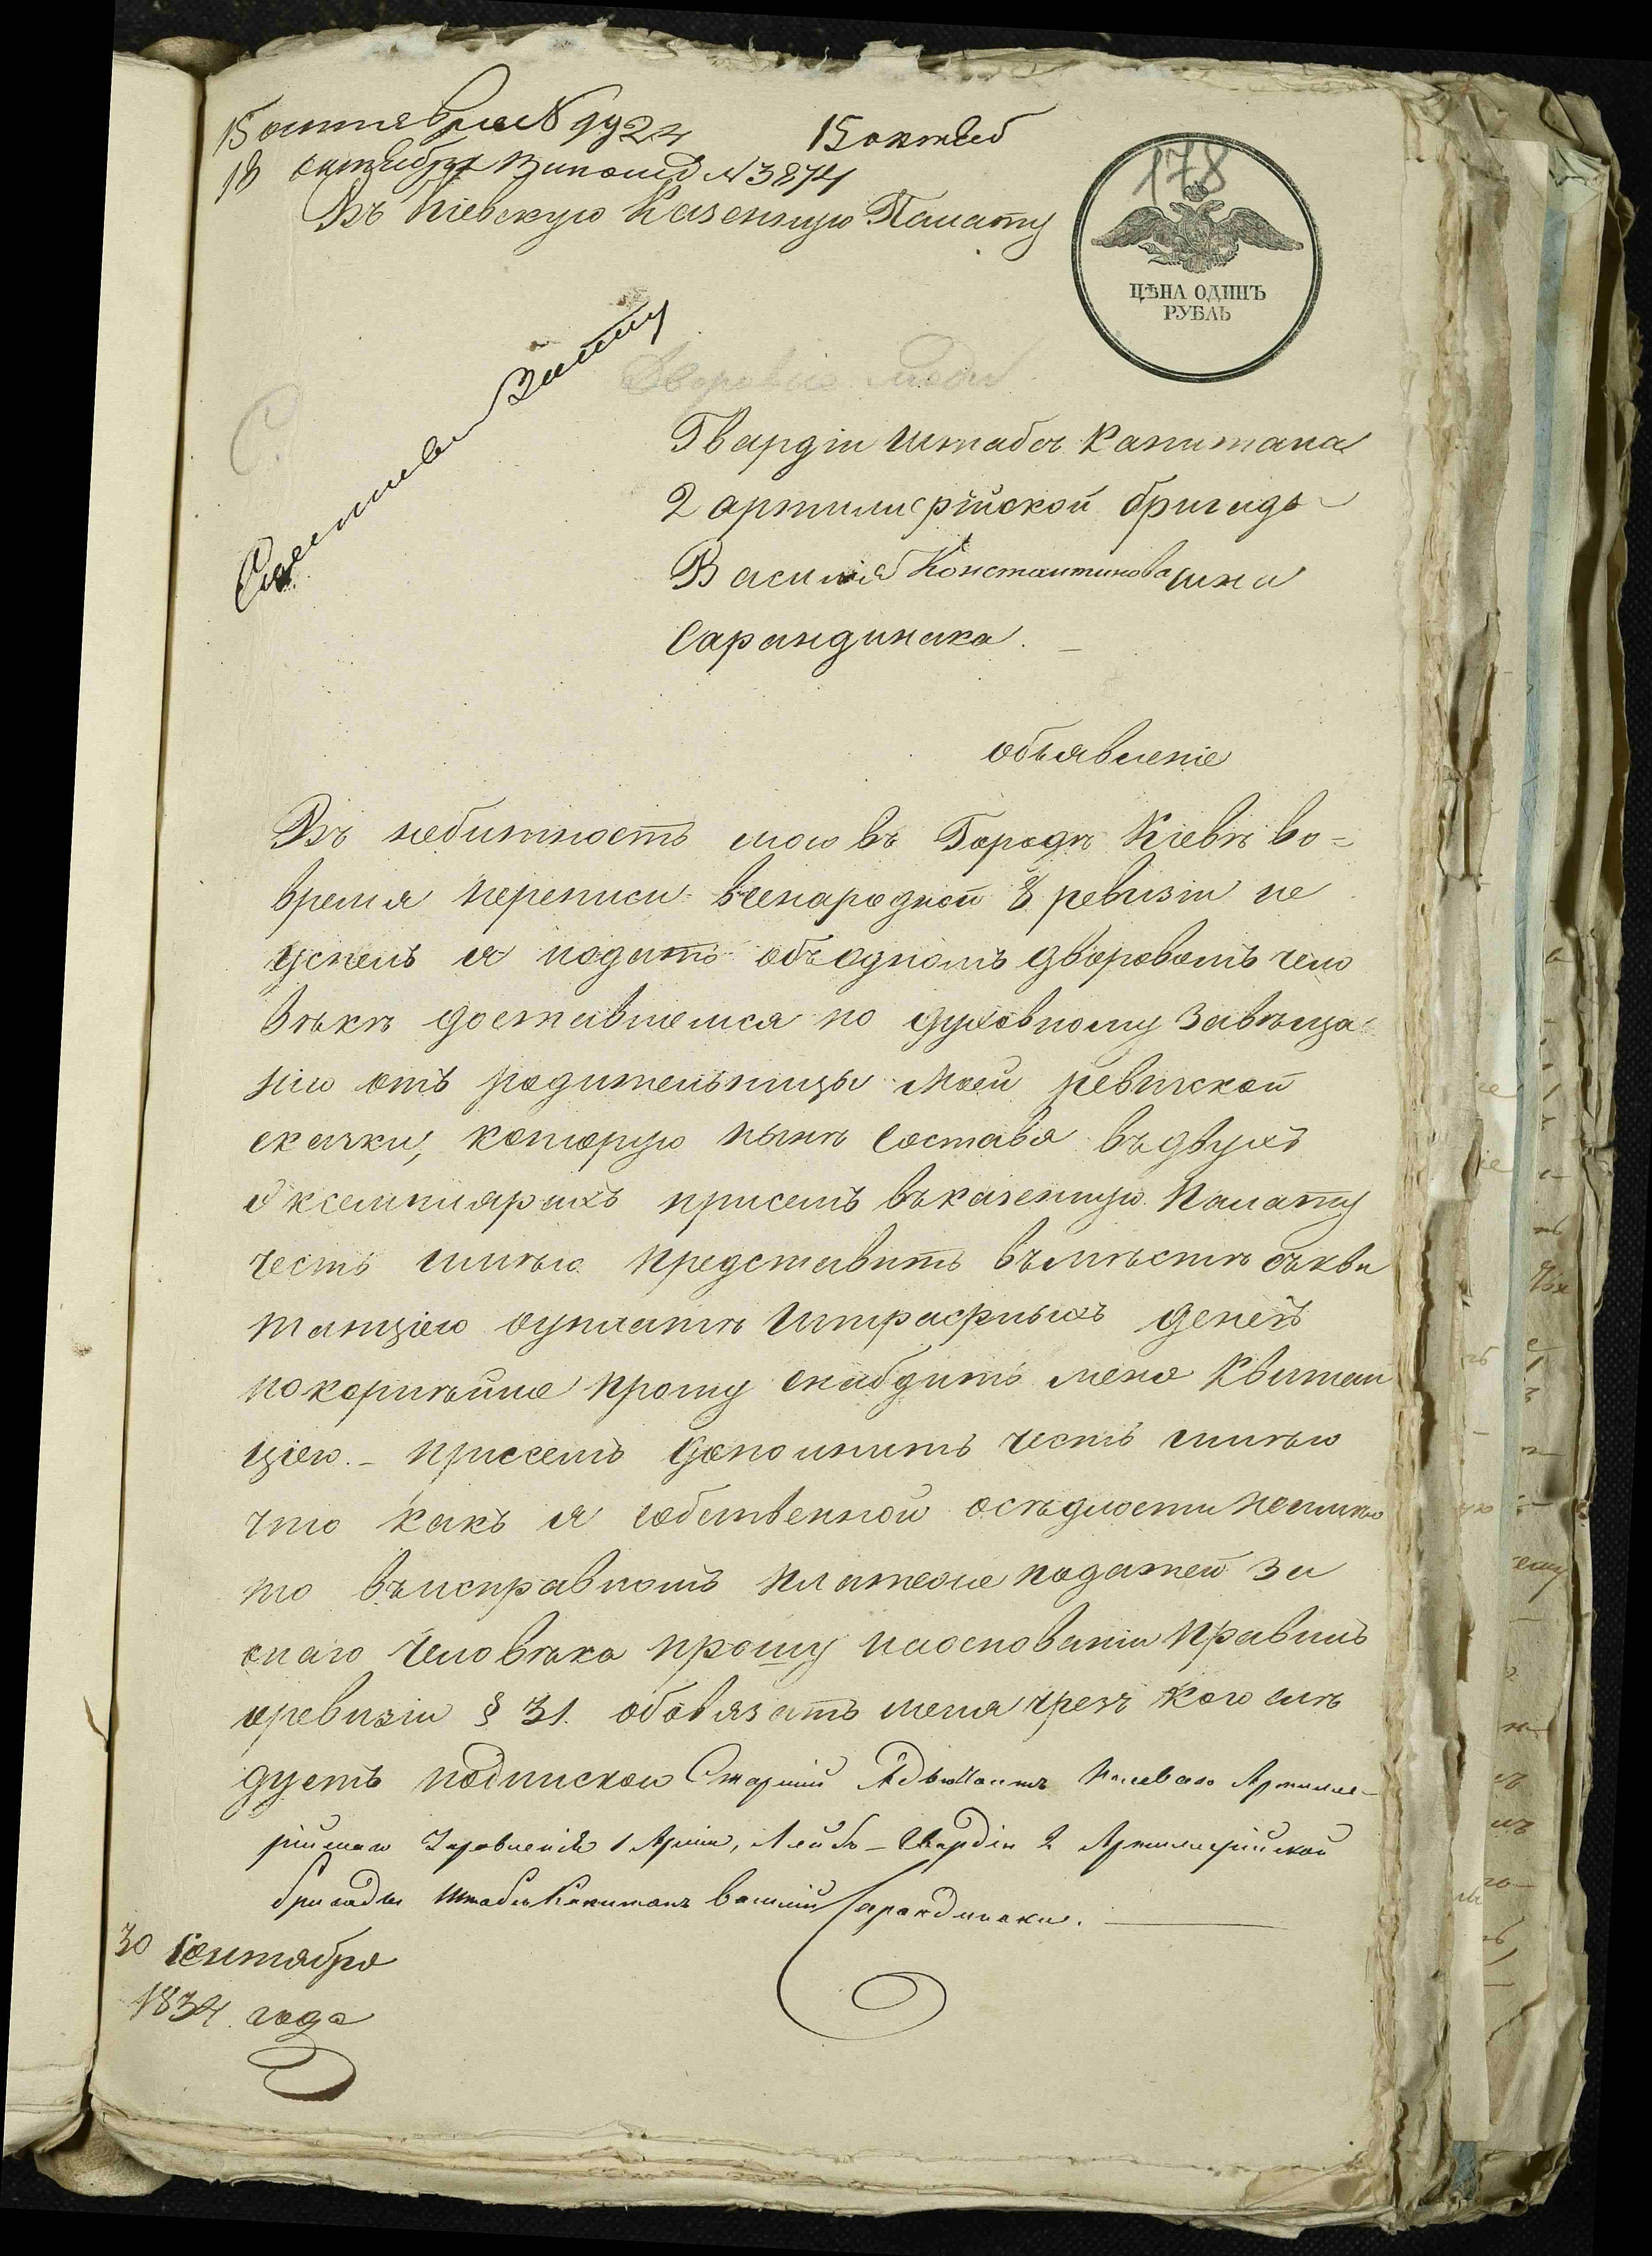 15 октября № 9924
15 октяб
178
18 октября №3874
Въ Кіевскую Казенную Палату
ЦѢНА ОДИНЪ
РУБЛЬ
Дворовые люди
Гвардіи Штабсъ Капитана
2 артилерійской бригады
Василія Константинова сына
Сарандинаки.
объявленіе
Въ небитность мою въ Городѣ Кіевѣ во-
время переписи всенародной 8 ревизіи не
успелъ я подать объодномъ дворовомъ чело
вѣкѣ доставшемся по духовному завѣща
нію отъ родительницы моей ревизской
скаски, которую нынѣ состава въдвухъ
эксемплярахъ присемъ въказенную Палату
честь имѣю представить въмѣстѣ съкви
танціею оуплатѣ Штрафныхъ денегъ
покорнѣйше прошу снабдить меня Квитан
ціею. - присемъ Дополнить честь имѣю
что какъ я собственной осѣдлости неимѣю
то въисправномъ платеже податей за
онаго человѣка прошу наоснованіи правилъ
оревизіи § 31. обовязать меня чрезъ кого слѣ
дуетъ подпискою Старшій Адъютантъ Полеваго Артилле-
рійскаго Управленія 1 Арміи, Лейбъ-Гвардіи 2 Артиллерійской
бригады Штабсъ Капитанъ Василій Сарандинаки.
30 Сентября
1834 года